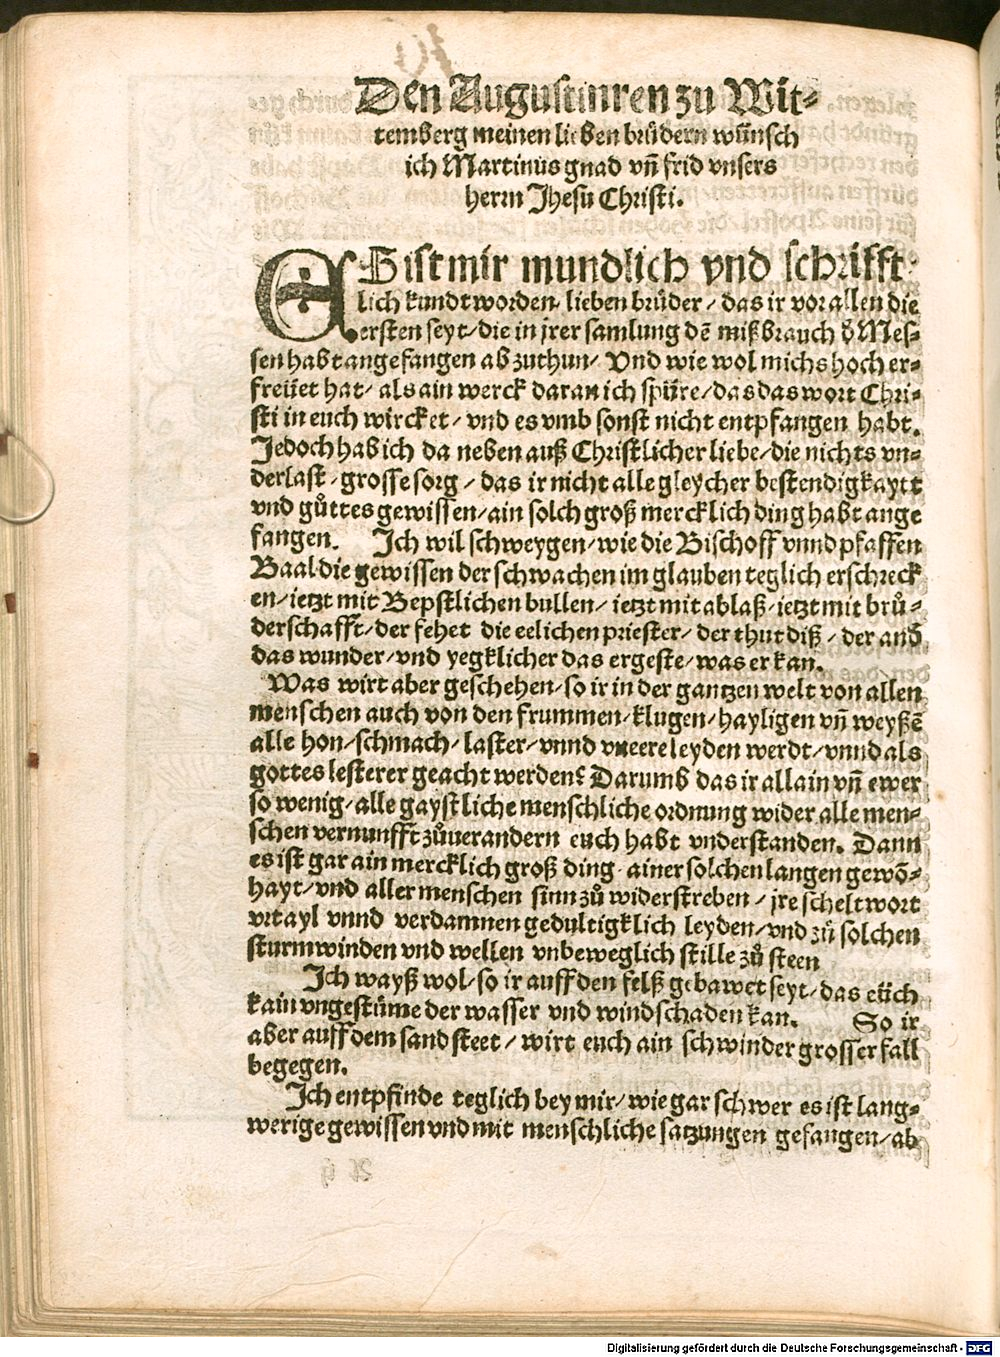 Den Augustinren zu Wit⸗
temberg meinen lieben brüdern wünsch
ich Martinus gnad vn̄ frid vnsers
herrn Jhesu Christi.
ES ist mir mundlich vnd schrifft
lich kundt worden/ lieben brüder/ das ir vor allen die
ersten seyt/ die in jrer samlung dē mißbrauch d̄ Mes⸗
sen habt angefangen abzuthun/ Vnd wie wol michs hoch er⸗
freüet hat/ als ain werck daran ich spüre/ das das wort Chri⸗
sti in euch wircket/ vnd es vmb sonst nicht entpfangen habt.
Jedoch hab ich da neben auß Christlicher liebe/ die nichts vn⸗
derlast/ grosse sorg/ das ir nicht alle gleycher bestendigkaytt
vnd gůttes gewissen/ ain solch groß mercklich ding habt ange
fangen. Ich wil schweygen/ wie die Bischoff vnnd pfaffen
Baal die gewissen der schwachen im glauben teglich erschreck
en/ ietzt mit Bepstlichen bullen/ ietzt mit ablaß/ ietzt mit brů⸗
derschafft/ der fehet die eelichen priester/ der thut diß/ der and̄
das wunder/ vnd yegklicher das ergeste/ was er kan.
Was wirt aber geschehen/ so ir in der gantzen welt von allen
menschen auch von den frummen/ klugen/ hayligen vn̄ weyßē
alle hon/ schmach/ laster/ vnnd vneere leyden werdt/ vnnd als
gottes lesterer geacht werden? Darumb das ir allain vn̄ ewer
so wenig/ alle gaystliche menschliche ordnung wider alle men⸗
schen vernunfft zůuerandern euch habt vnderstanden. Dann
es ist gar ain mercklich groß ding/ ainer solchen langen gewō⸗
hayt/ vnd aller menschen sinn zů widerstreben/ jre scheltwort
vrtayl vnnd verdamnen gedultigklich leyden/ vnd zů solchen
sturmwinden vnd wellen vnbeweglich stille zů steen
Ich wayß wol/ so ir auff den felß gebawet seyt/ das eüch
kain vngestüme der wasser vnd wind schaden kan. So ir
aber auff dem sand steet/ wirt euch ain schwinder grosser fall
begegen.
Ich entpfinde teglich bey mir/ wie gar schwer es ist lang⸗
werige gewissen vnd mit menschliche satzungen gefangen/ ab
Digitalisierung gefördert durch die Deutsche Forschungsgemeinschaft - DFG